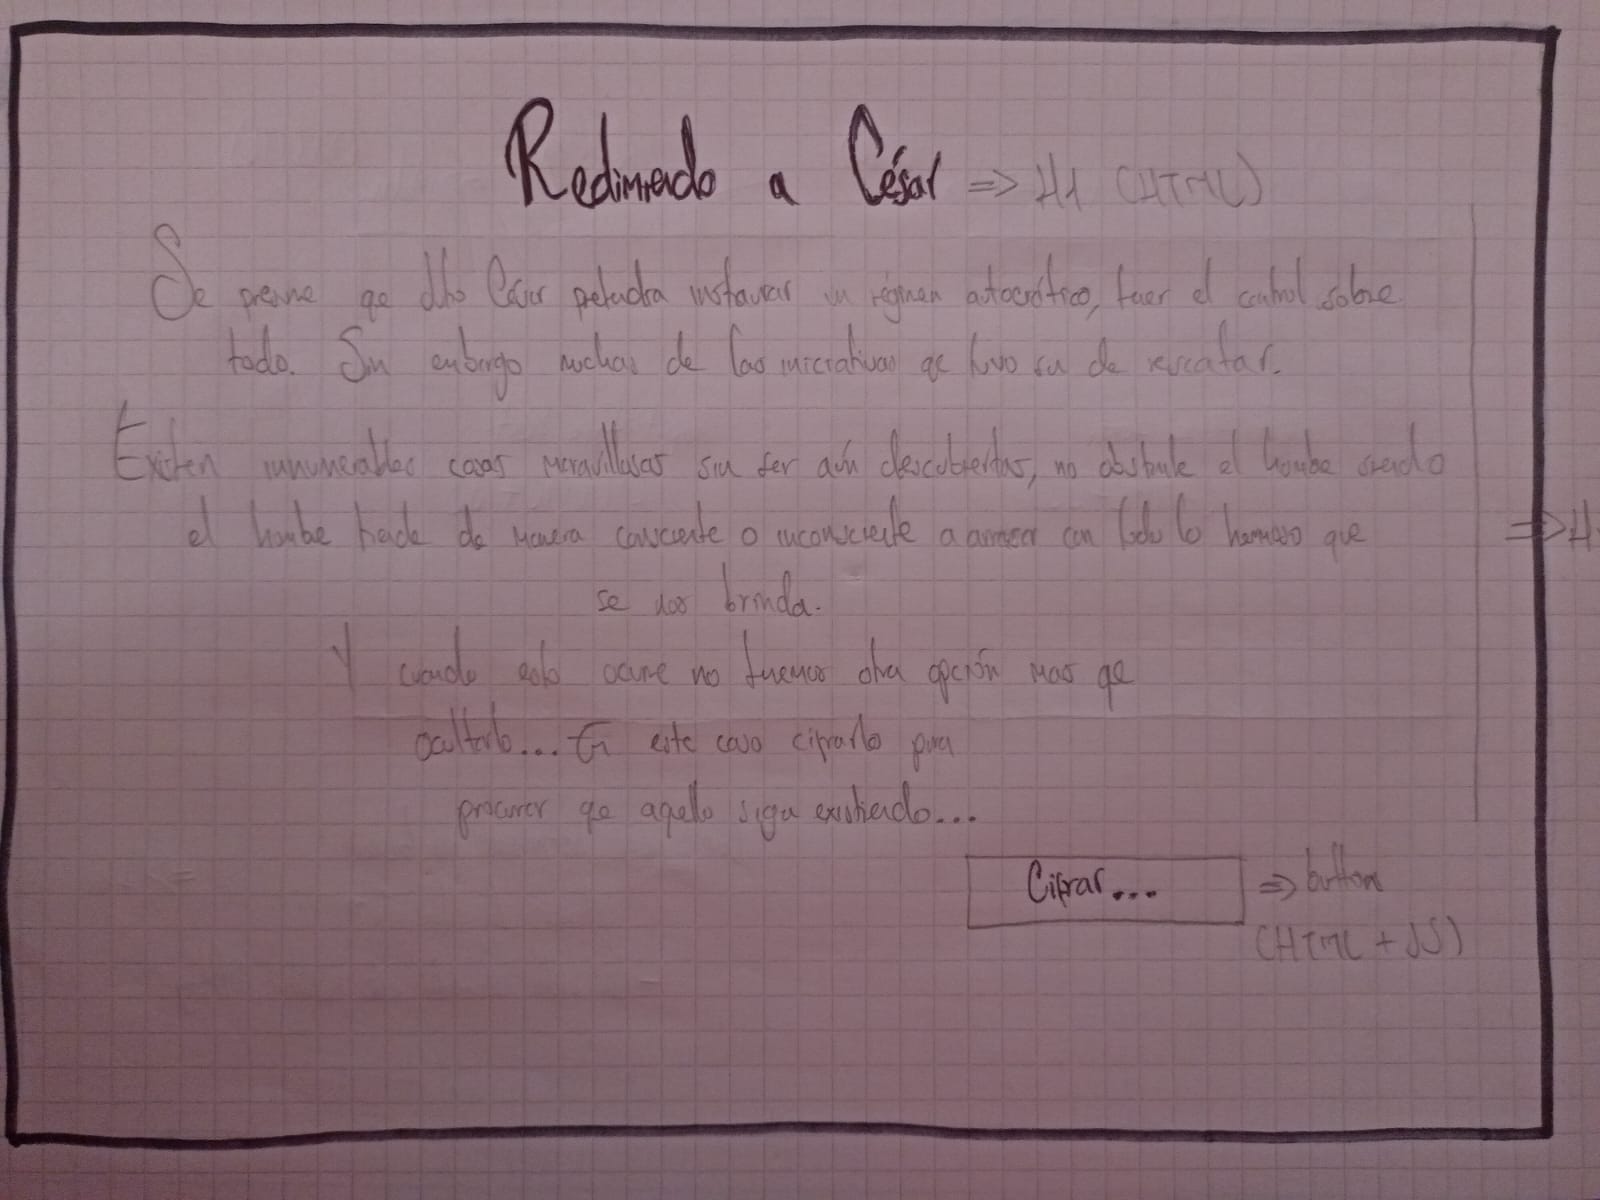 Redimiendo a César => H1 (HTML)
Se presume que dho César pretendía instaurar un régimen autocrático, tener el control sobre
todo. Sin embargo muchas de las iniciativas que tuvo son de rescatar.
Existen innumerables cosas maravillosas sin ser aún descubiertas, no obstante el hombre siendo
el hombre tiende de manera consciente o inconsciente a arrasar con todo lo hermoso que
=> H
se nos brinda.
Y cuando esto ocurre no tenemos otra opción mas qe
ocultarlo... En este caso cifrarlo para
procurar qe aqello siga existiendo...
Cifrar... => button
(HTML + JS)